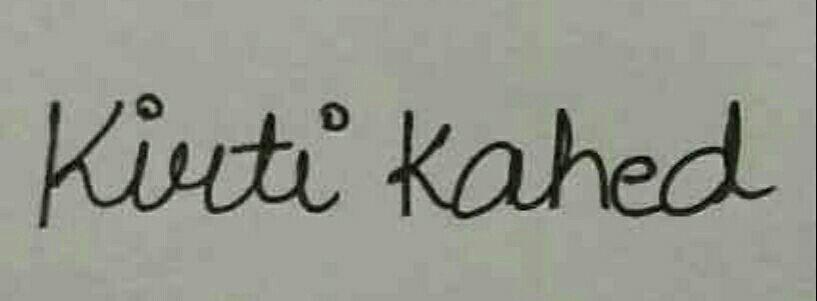 Kirti Kahed